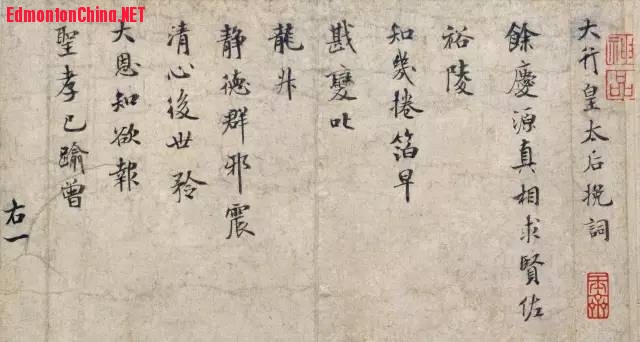 EdmontonChina.NET
大行皇太后挽詞
餘慶源真相求賢佐
裕陵
知幾捲箔早
戡變叱
龍升
靜德群邪震
清心後世矜
大恩知欲報
聖孝已踰曾
右一